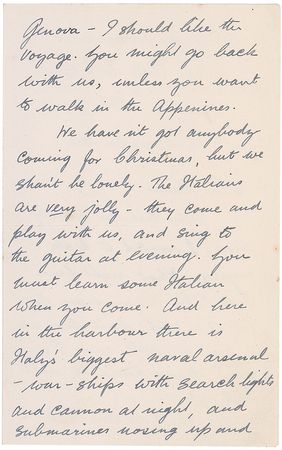 Genova – I should like the
voyage. You might go back
with us, unless you want
to walk in the Appenines.
We haven't got anybody
coming for Christmas, but we
shan't be lonely. The Italians
are very jolly – they come and
play with us, and sing to
the guitar at evening. You
must learn some Italian
when you come. And here
in the harbour there is
Italy's biggest naval arsenal
– war-ships with search lights
and cannon at night, and
submarines nosing up and